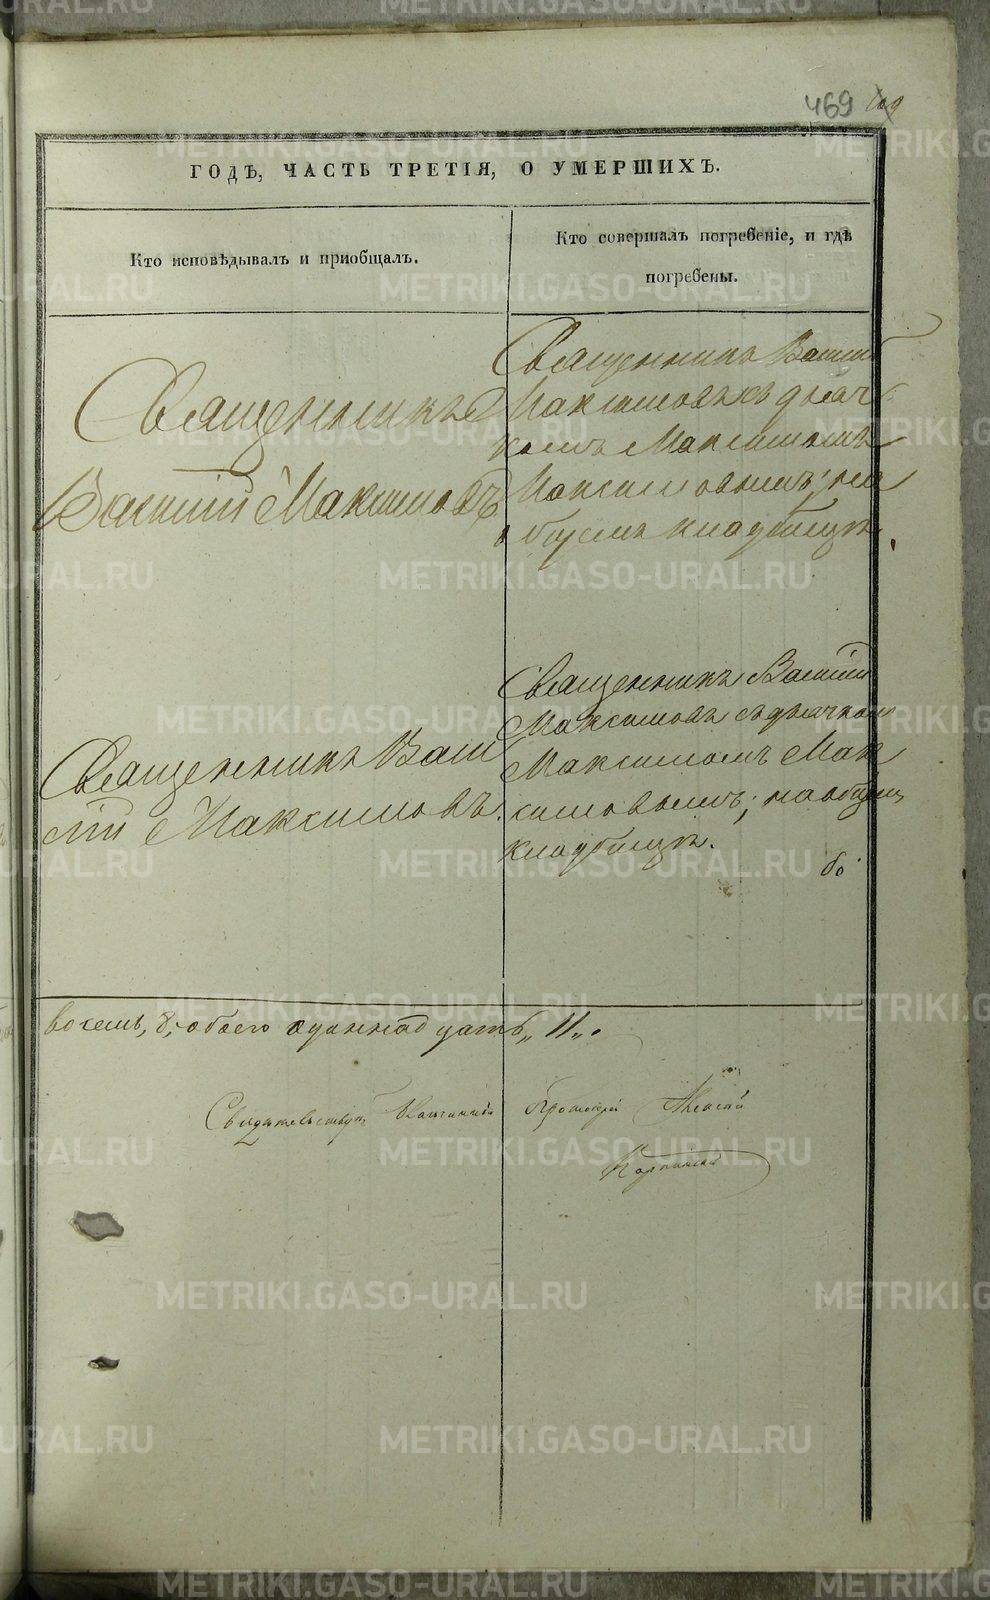 469
ГОДЪ, ЧАСТЬ ТРЕТІЯ, О УМЕРШИХЪ.
Кто исповѣдывалъ и пріобщалъ.
Кто совершалъ погребеніе, и гдѣ
погребены.
Священникъ
Василій Максимовъ
Священникъ Василій
Максимовъ съ дьяч-
комъ Максимомъ
Максимовымъ; на
общемъ кладбищѣ.
Священникъ Васи
лій Максимовъ.
Священникъ Василій
Максимовъ съ дьячкомъ
Максимомъ Мак
симовымъ; на общемъ
кладбищѣ.
восемь, 8; обоего одиннадцать „11„.
Свидѣтельствуетъ Протоіерей Алексій
Карпинскій
METRIKI.GASO-URAL.RU